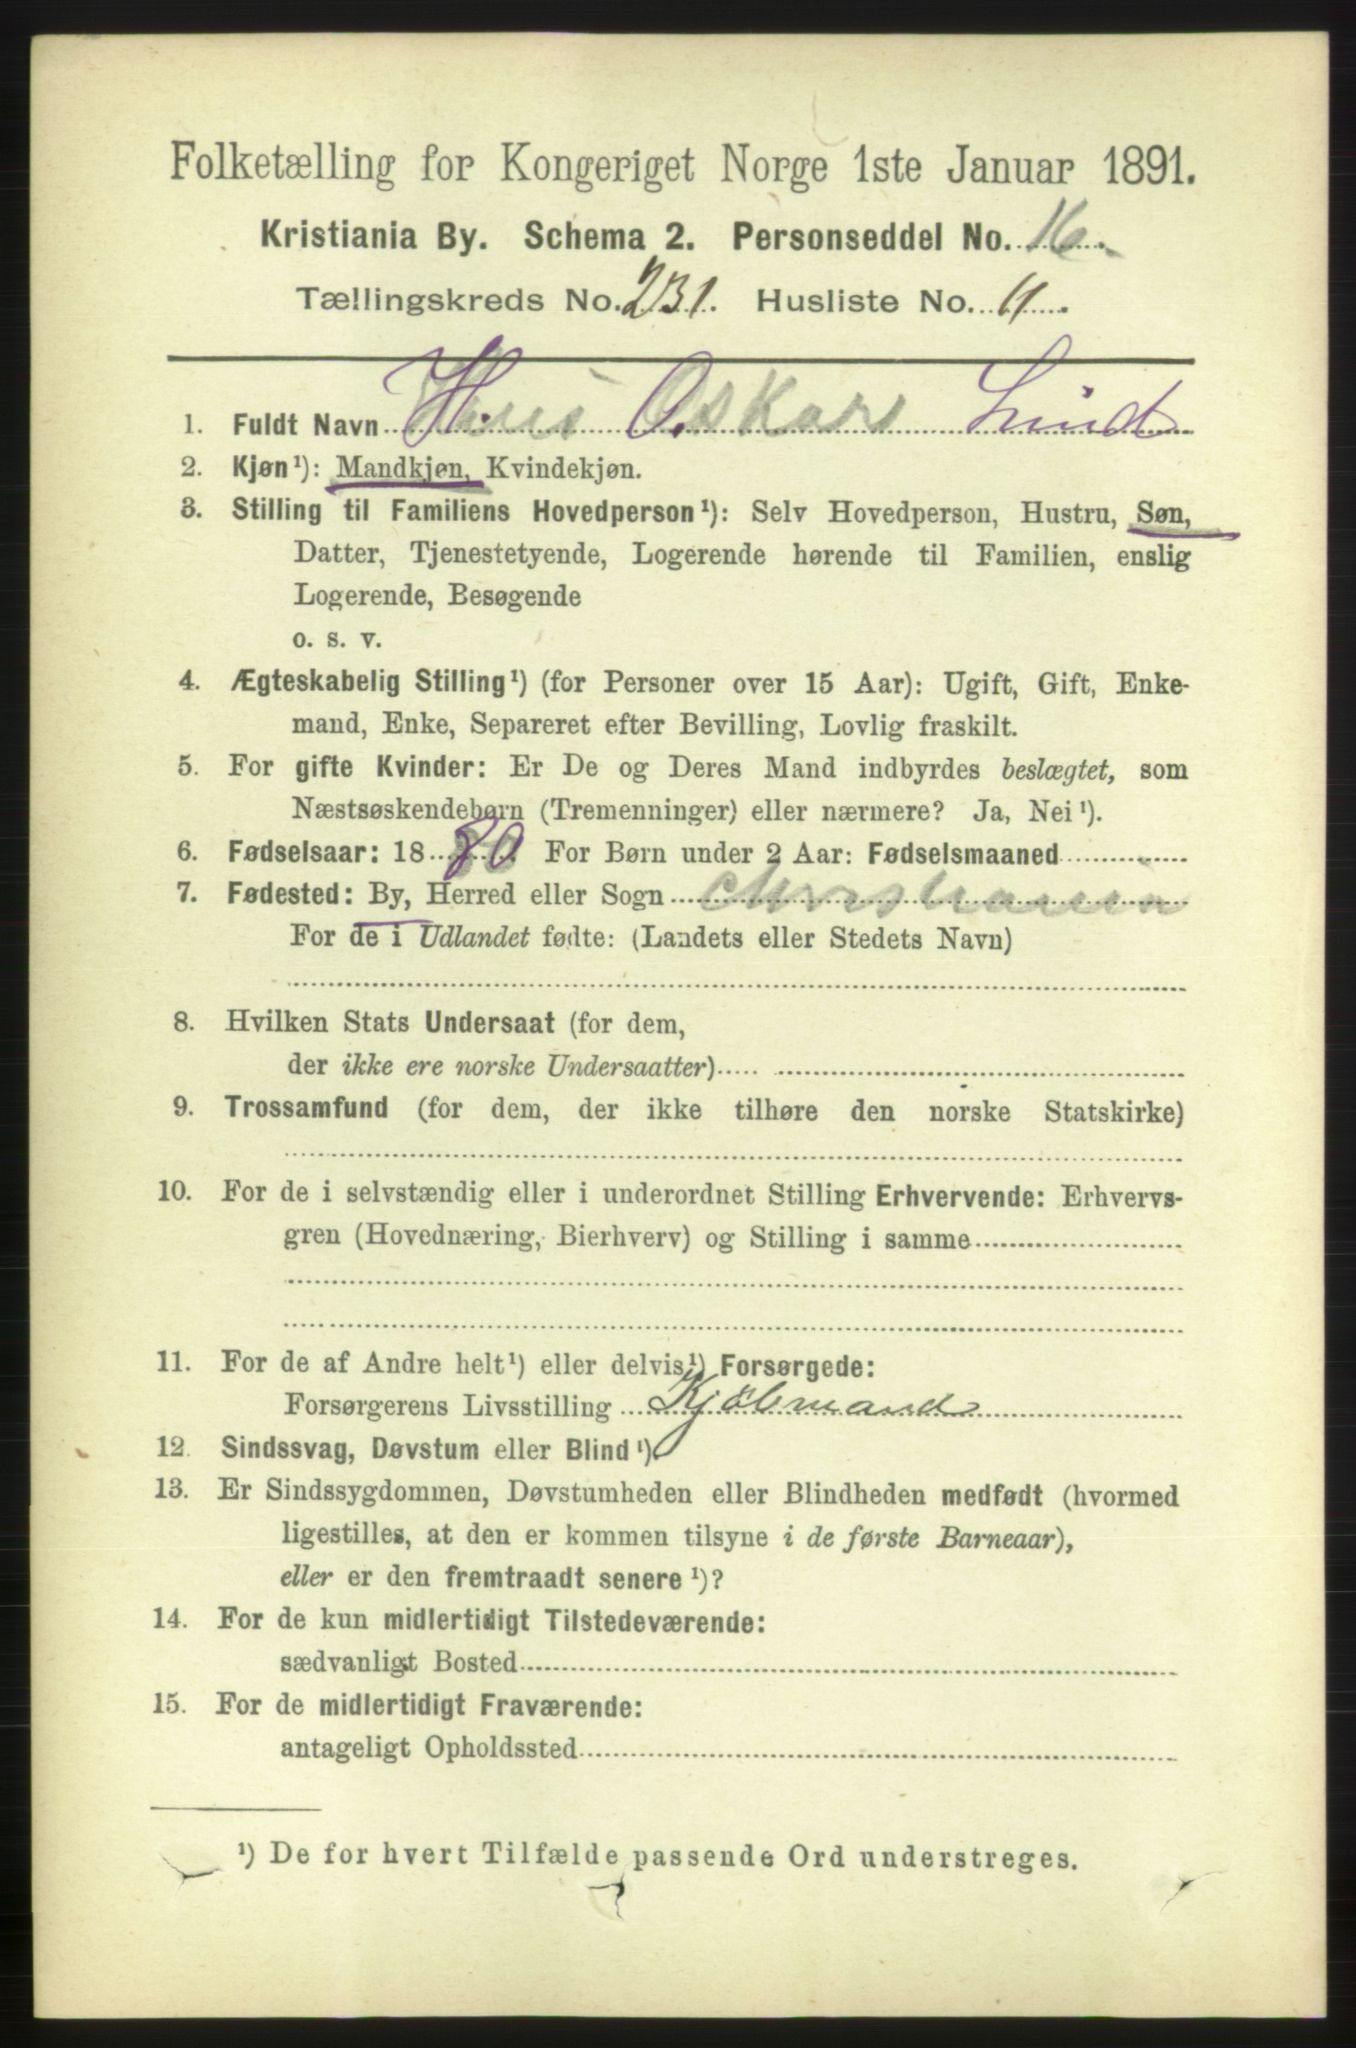 Folketælling for Kongeriget Norge 1ste Januar 1891.
Kristiania By. Schema 2. Personseddel No. 16.
Tællingskreds No. 231. Husliste No. 11.
1. Fuldt Navn Hans Oskar Lind
2. Kjøn¹): Mandkjøn, Kvindekjøn.
3. Stilling til Familiens Hovedperson¹): Selv Hovedperson, Hustru, Søn,
Datter, Tjenestetyende, Logerende hørende til Familien, enslig
Logerende, Besøgende
o. s. v.
4. Ægteskabelig Stilling¹) (for Personer over 15 Aar): Ugift, Gift, Enke-
mand, Enke, Separeret efter Bevilling, Lovlig fraskilt.
5. For gifte Kvinder: Er De og Deres Mand indbyrdes beslægtet, som
Næstsøskendebørn (Tremenninger) eller nærmere? Ja, Nei¹).
6. Fødselsaar: 1880. For Børn under 2 Aar: Fødselsmaaned
7. Fødested: By, Herred eller Sogn Christiania
For de i Udlandet fødte: (Landets eller Stedets Navn)
8. Hvilken Stats Undersaat (for dem,
der ikke ere norske Undersaatter)
9. Trossamfund (for dem, der ikke tilhøre den norske Statskirke)
10. For de i selvstændig eller i underordnet Stilling Erhvervende: Erhvervs-
gren (Hovednæring, Bierhverv) og Stilling i samme
11. For de af Andre helt¹) eller delvis¹) Forsørgede:
Forsørgerens Livsstilling Kjöbmand
12. Sindssvag, Døvstum eller Blind¹).
13. Er Sindssygdommen, Døvstumheden eller Blindheden medfødt (hvormed
ligestilles, at den er kommen tilsyne i de første Barneaar),
eller er den fremtraadt senere¹)?
14. For de kun midlertidigt Tilstedeværende:
sædvanligt Bosted
15. For de midlertidigt Fraværende:
antageligt Opholdssted
¹) De for hvert Tilfælde passende Ord understreges.